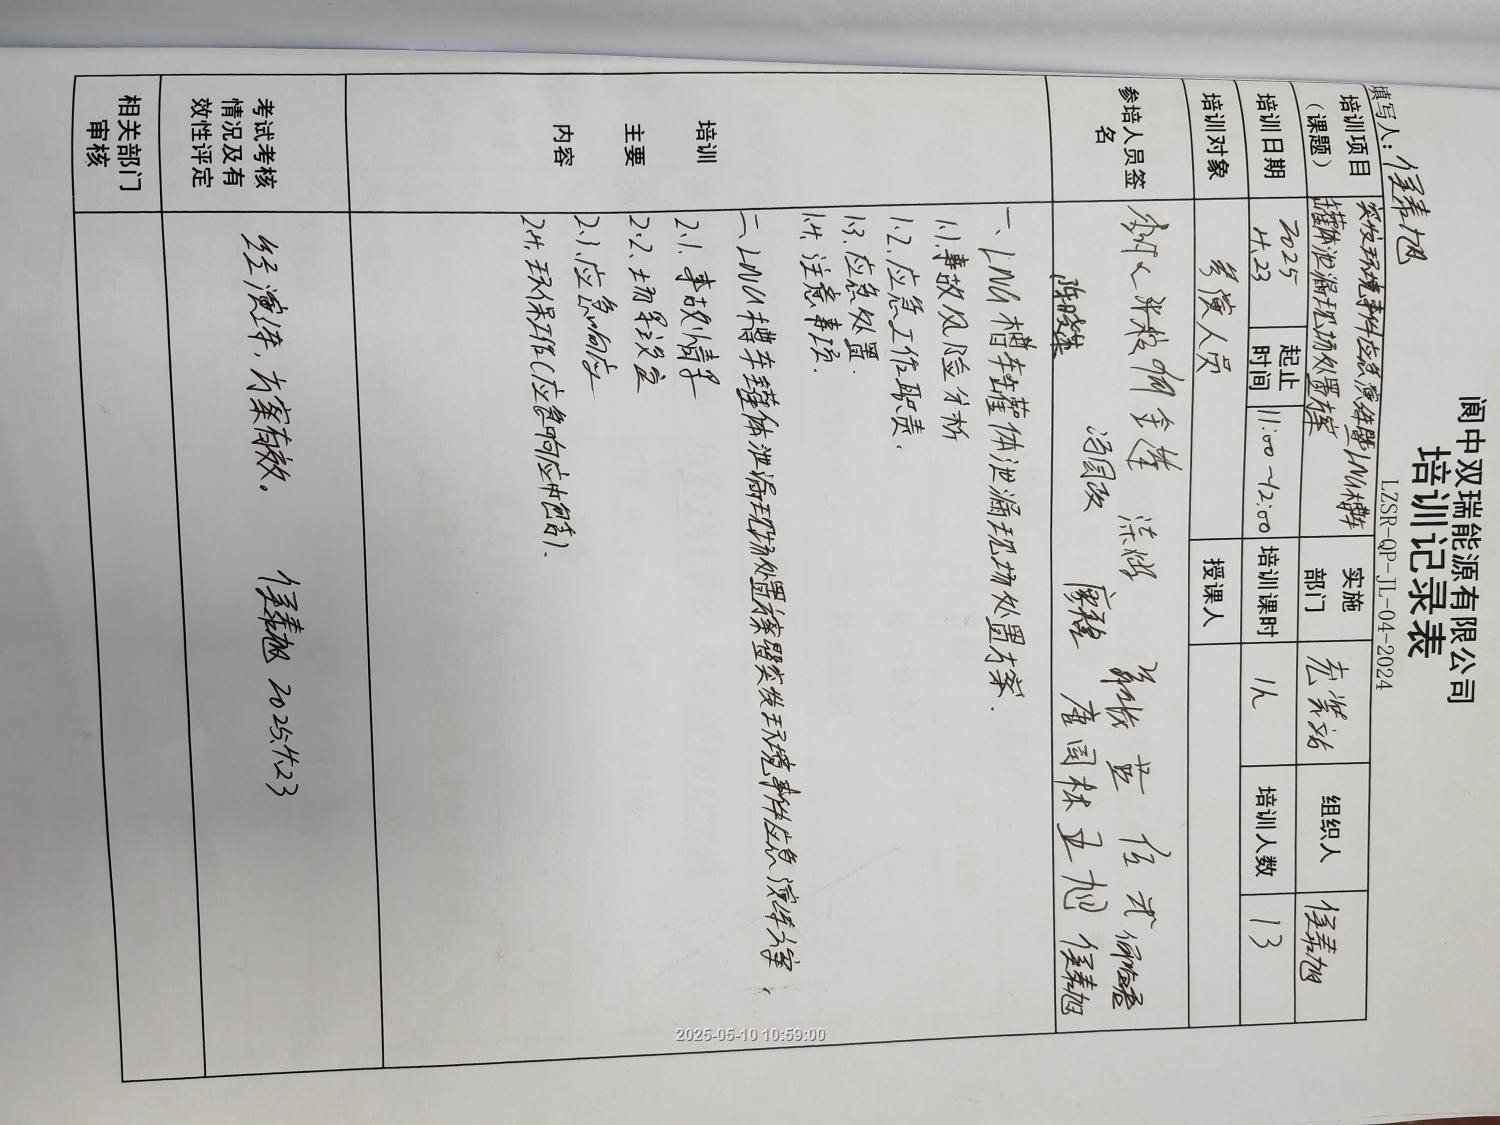 阆中双瑞能源有限公司
培训记录表
LZSR-QP-JL-04-2024
填写人：侯春旭
培训项目（课题） 突发环境事件应急演练暨LNG槽车罐体泄漏现场处置方案 实施部门 宏 站 组织人 侯春旭
培训日期 2025 4.23 起止时间 11:00~12:00 培训课时 1h 培训人数 13
培训对象 参演人员 授课人
参培人员签名 陈 唐国林 王旭 侯春旭
培训主要内容
一、LNG槽车罐体泄漏现场处置方案.
1.1.事故风险分析
1.2.应急工作职责.
1.3.应急处置.
1.4.注意事项.
二、LNG槽车罐体泄漏现场处置方案暨突发环境事件应急演练方案,
2.1.事故情景
2.2.场景设定
2.3.应急响应
2.4.环保班(应急响应中包含).
考试考核情况及有效性评定 经演练,方案有效。
侯春旭 2025.4.23
相关部门审核
2025-05-10 10:59:00